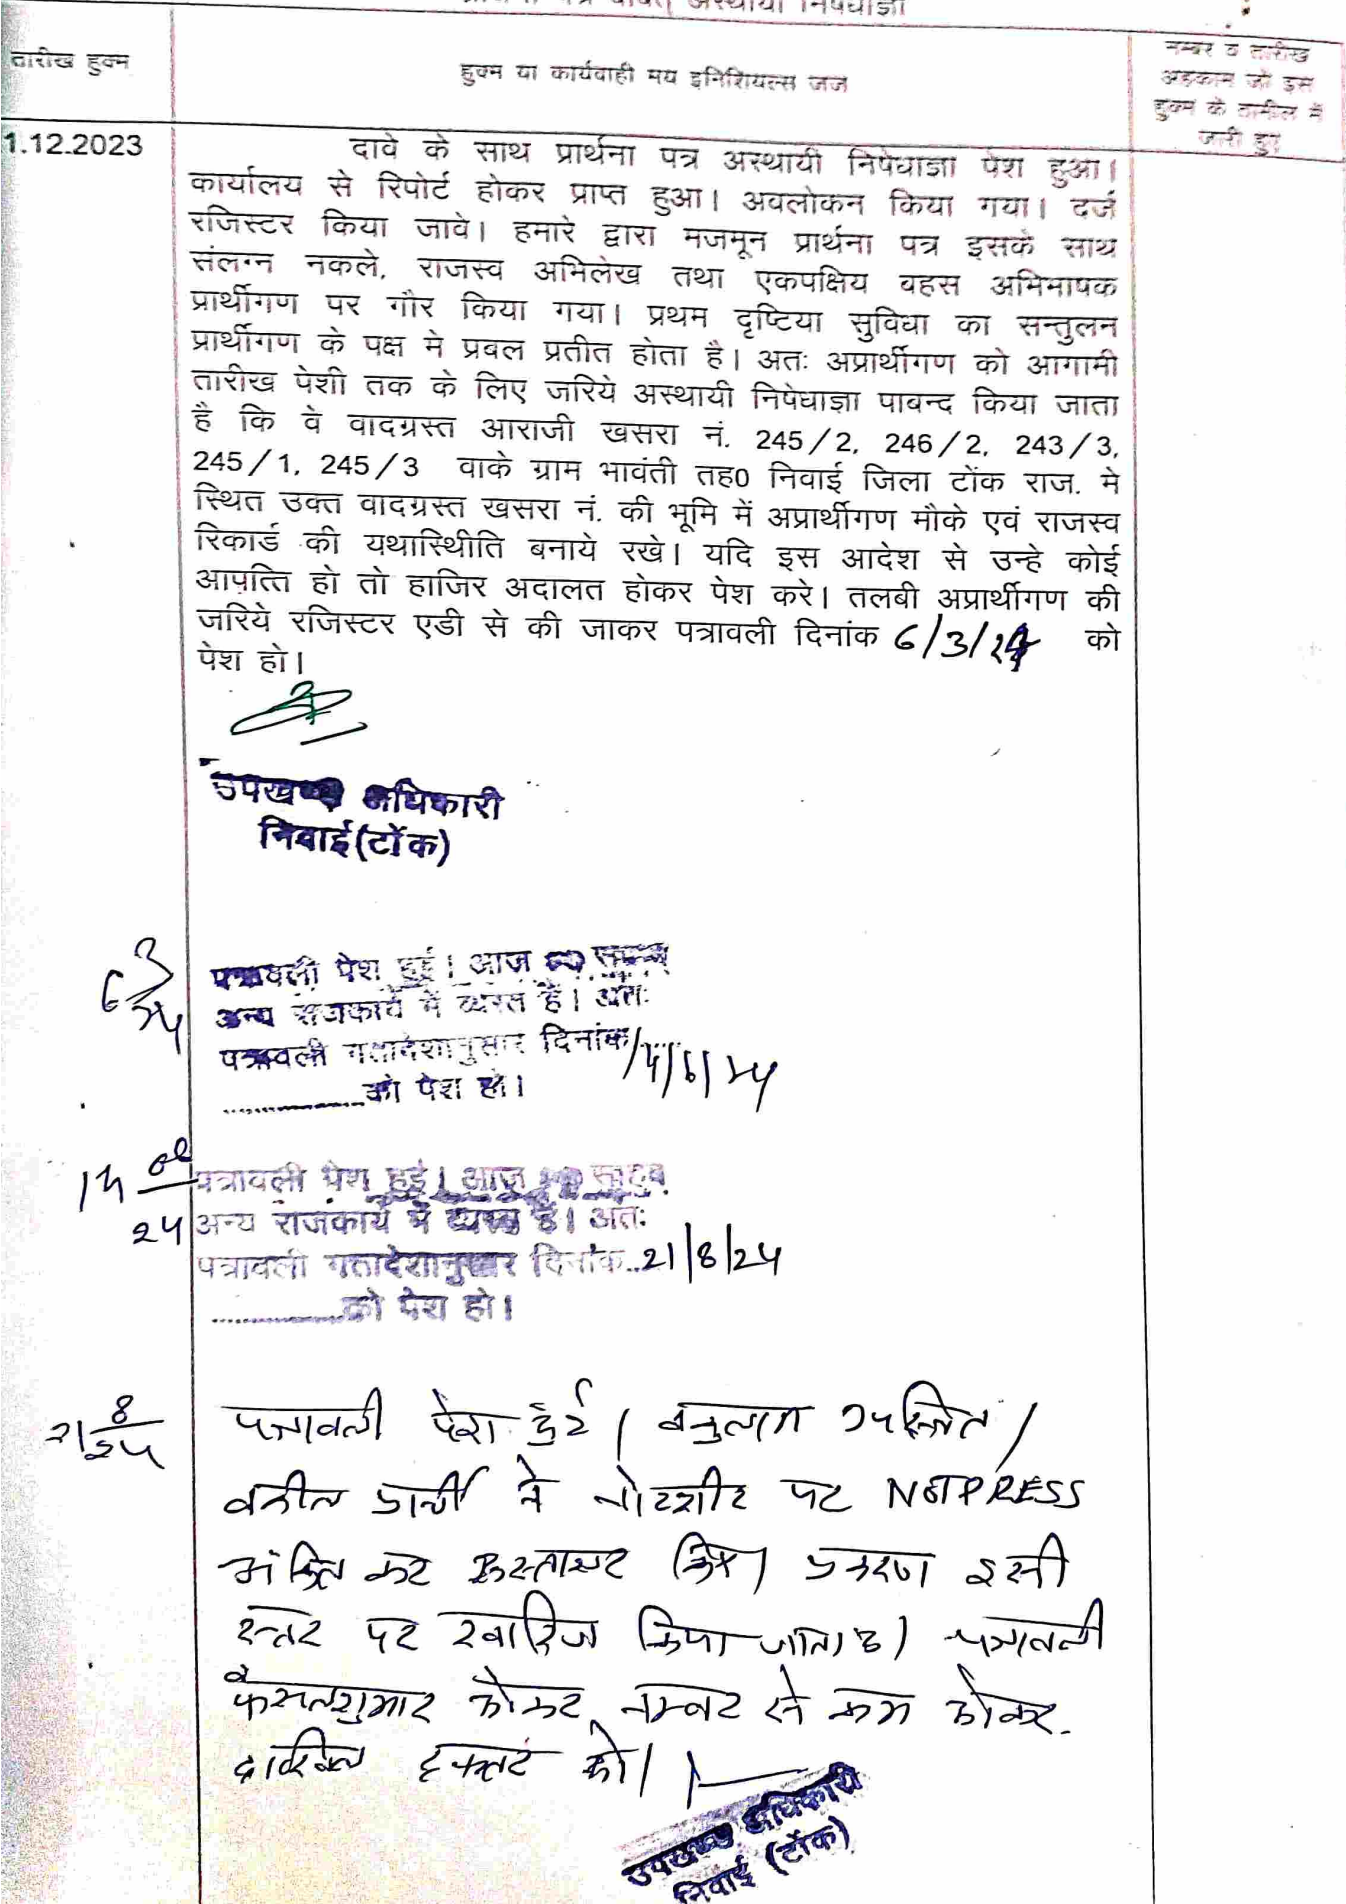 प्रार्थना पत्र बाबत् अस्थायी निषेधाज्ञा
तारीख हुक्म
हुक्म या कार्यवाही मय इनिशियल्स जज
नम्बर व तारीख
अहकाम जो इस
हुक्म के तामील में
जारी हुए
1.12.2023
दावे के साथ प्रार्थना पत्र अस्थायी निषेधाज्ञा पेश हुआ।
कार्यालय से रिपोर्ट होकर प्राप्त हुआ। अवलोकन किया गया। दर्ज
रजिस्टर किया जावे। हमारे द्वारा मजमून प्रार्थना पत्र इसके साथ
संलग्न नकले, राजस्व अभिलेख तथा एकपक्षिय वहस अभिभाषक
प्रार्थीगण पर गौर किया गया। प्रथम दृष्टिया सुविधा का सन्तुलन
प्रार्थीगण के पक्ष मे प्रबल प्रतीत होता है। अतः अप्रार्थीगण को आगामी
तारीख पेशी तक के लिए जरिये अस्थायी निषेधाज्ञा पाबन्द किया जाता
है कि वे वादग्रस्त आराजी खसरा नं. 245/2, 246/2, 243/3,
245/1, 245/3 वाके ग्राम भावंती तह0 निवाई जिला टोंक राज. मे
स्थित उक्त वादग्रस्त खसरा नं. की भूमि में अप्रार्थीगण मौके एवं राजस्व
रिकार्ड की यथास्थिीति बनाये रखे। यदि इस आदेश से उन्हे कोई
आपत्ति हो तो हाजिर अदालत होकर पेश करे। तलबी अप्रार्थीगण की
जरिये रजिस्टर एडी से की जाकर पत्रावली दिनांक 6/3/24 को
पेश हो।
उपखण्ड अधिकारी
निवाई (टोंक)
6/3/24
पत्रावली पेश हुई। आज
अन्य राजकार्य में व्यस्त है। अतः
पत्रावली गतादेशानुसार दिनांक 14/6/24
............को पेश हो।
14/06/24
पत्रावली पेश हुई। आज साहब
अन्य राजकार्य में व्यस्त है। अतः
पत्रावली गतादेशानुसार दिनांक..21/8/24
............को पेश हो।
21/8/24
पत्रावली पेश हुई। वकुलाय उपस्थित।
वकील प्रार्थी ने नोटशीट पर NOTPRESS
अंकित कर हस्ताक्षर किये। प्रकरण इसी
स्तर पर खारिज किया जाता है। पत्रावली
फैसलशुमार होकर नम्बर से कम होकर
दाखिल दफ्तर हो।
उपखण्ड अधिकारी
निवाई (टोंक)